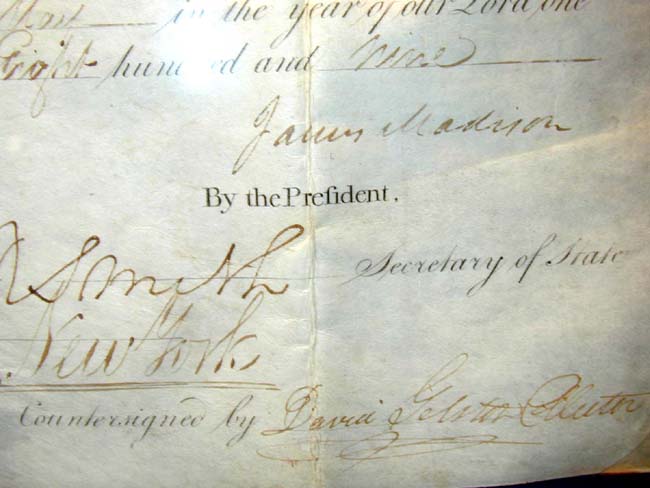 May in the year of our Lord one
Eight hundred and Nine
James Madison
By the Preſident.
R Smith Secretary of State
New York
Countersigned by David Gelston Collector